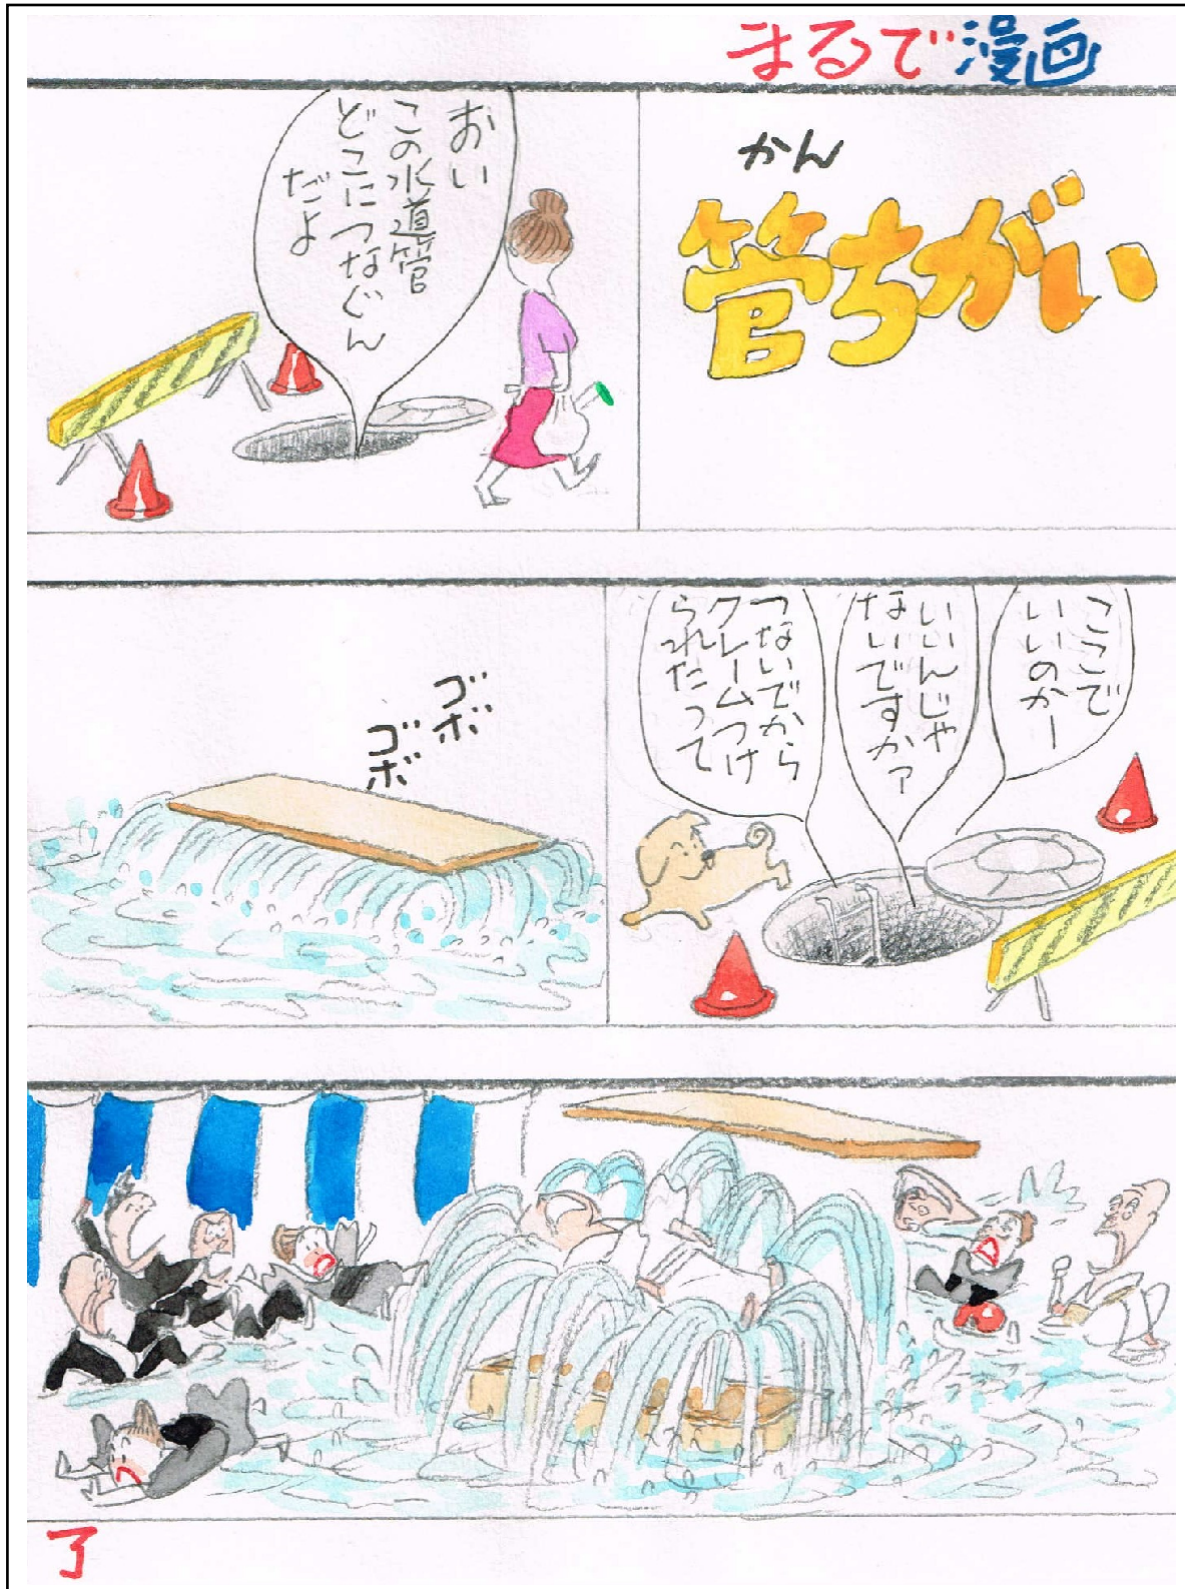 まるで漫画
かん
管ちがい
おい
この水道管
どこにつなぐん
だよ
ここで
いいのかー
いいんじゃ
ないですかァ
つないでから
クレームつけ
られたって
ゴボ
ゴボ
了